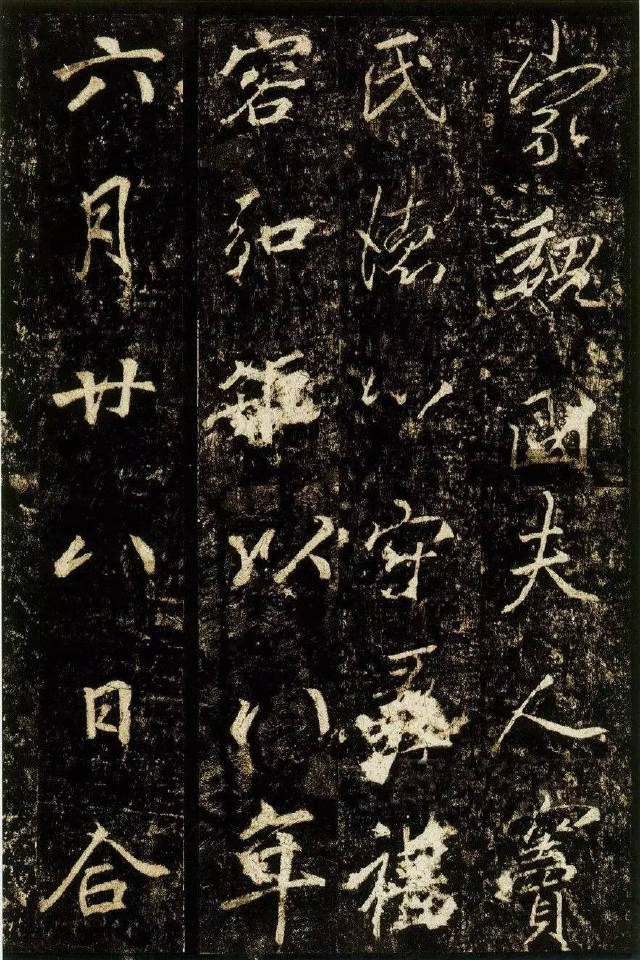 家魏國夫人竇
氏以守
容以八年
六月廿八日合